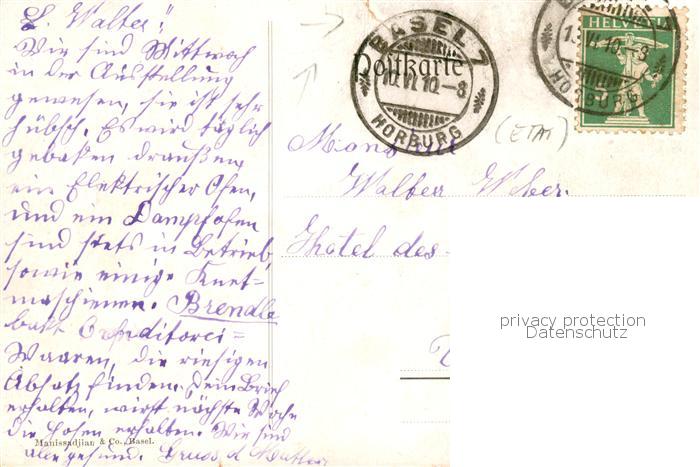 L. Walter!
Wir sind Mittwoch
in der Ausstellung
gewesen, sie ist sehr
hübsch. Es wird täglich
gebaken draußen
ein Elektrischer Ofen,
und ein Dampfofen
sind stets in Betrieb,
sowie einige Knet=
maschienen. Brendle
bakt Conditorei=
Waaren, die riesigen
Absatz finden. Dein Brief
erhalten, wirst nächste Woche
die Hosen erhalten. Wir sind
alle gesund. Gruss d Mutter
Manissadjian & Co., Basel.
Postkarte
BASEL 7
10.VI.10.-8
HORBURG
HELVETIA
VI.10.-8
HORBURG
(ETAT)
Monsieur
Walter Weber.
Hotel des
privacy protection
Datenschutz